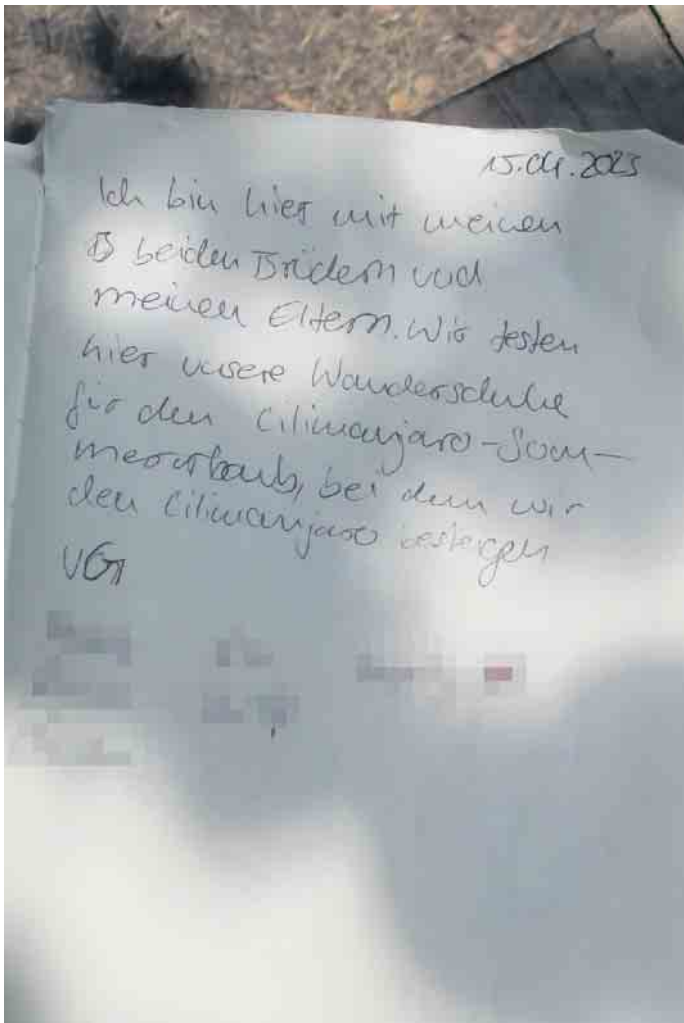 15.04.2023
Ich bin hier mit meinen
B beiden Brüdern und
meinen Eltern. Wir testen
hier unsere Wanderschuhe
für den Cilimanjaro-Som-
merurlaub, bei dem wir
den Cilimanjaro besteigen
VG